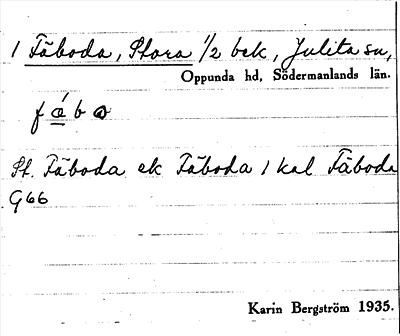 1 Fäboda, Stora 1/2 bek, Julita sn,
Oppunda hd, Södermanlands län.
St. Fäboda ek Fäboda 1 kal Fäboda
G66
Karin Bergström 1935.